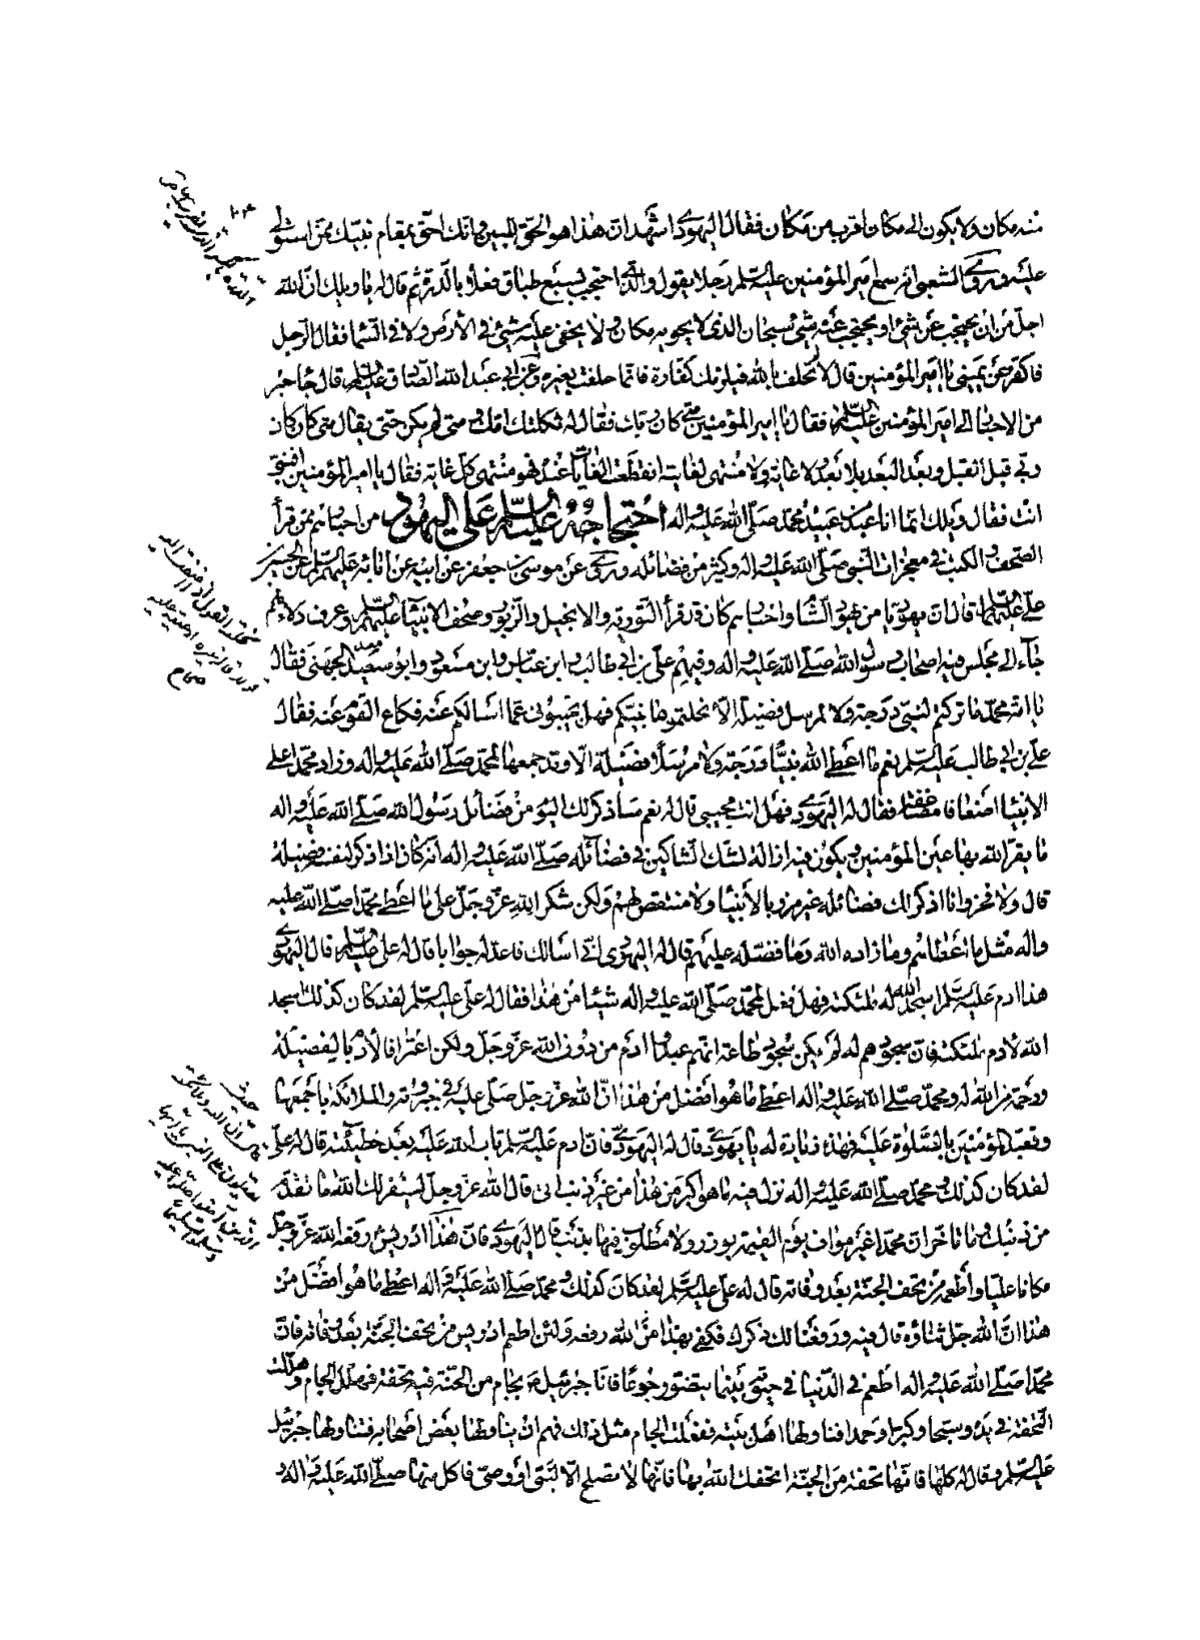 منه مكان ولا يكون الى مكان اقرب من مكان فقال اليهودى اشهد ان هذا هو الحق المبين وانك احق بمقام نبيك ممن استولى
عليه وروى الشعبى انه سمع امير المؤمنين عليه السلم رجلا يقول والذى احتجب بسبع طباق فعلاه بالدرة ثم قال له يا ويلك ان الله
اجل من ان يحتجب عن شئ او يحتجب عنه شئ سبحان الذى لا يحويه مكان ولا يخفى عليه شئ فى الأرض ولا فى السما فقال الرجل
فاكفر عن يمينى يا امير المؤمنين قال لا لم تحلف بالله فيلزمك كفارة فانما حلفت بغيره وعن ابى عبد الله الصادق عليه السلم قال جا حبر
من الاحبار الى امير المؤمنين عليه السلم فقال يا امير المؤمنين متى كان ربك فقال له ثكلتك امك ومتى لم يكن حتى يقال متى كان كان
ربى قبل القبل وبعد البعد بلا بعد ولا غاية ولا منتهى لغايته انقطعت الغايات عنده فهو منتهى كل غاية فقال يا امير المؤمنين افنبى
انت فقال ويلك انما انا عبد من عبيد محمد صلى الله عليه واله احتجاجه عليه السلم على اليهود من احبارهم ممن قرأ
الصحف والكتب فى معجزات النبى صلى الله عليه واله وكثير من فضائله وروى عن موسى بن جعفر عن ابيه عن ابائه عليهم السلم عن الحسين بن
على عليهما السلم قال ان يهوديا من يهود الشام واحبارهم كان قد قرأ التورية والانجيل والزبور وصحف الانبياء عليهم السلم وعرف دلائلهم
جاء الى مجلس فيه اصحاب رسول الله صلى الله عليه واله وفيهم على بن ابى طالب وابن عباس وابن مسعود وابو سعيد الجهنى فقال
يا امة محمد ما تركتم لنبى درجة ولا لمرسل فضيلة الا نحلتموها نبيكم فهل تجيبونى عما اسالكم عنه فكاع القوم عنه فقال
على بن ابى طالب عليه السلم نعم ما اعطى الله نبيا درجة ولا مرسلا فضيلة الا وقد جمعها لمحمد صلى الله عليه واله وزاد محمدا على
الانبيا اضعافا مضاعفة فقال له اليهودى فهل انت مجيبى قال له نعم ساذكر لك اليوم من فضائل رسول الله صلى الله عليه واله
ما يقر الله بها عين المؤمنين ويكون فيه ازالة لشك الشاكين فى فضائله صلى الله عليه واله انه كان اذا ذكر لنفسه فضيلة
قال ولا فخر وانا اذكر لك فضائله غير مزر بالأنبيا ولا منتقص لهم ولكن شكر الله عز وجل على ما اعطى محمدا صلى الله عليه
واله مثل ما اعطاهم وما زاده الله وما فضله عليهم قال له اليهودى انى اسالك فاعد له جوابا قال له على عليه السلم هات قال اليهودى
هذا ادم عليه السلم اسجد الله له ملئكته فهل فعل لمحمد صلى الله عليه واله شيئا من هذا فقال له على عليه السلم لقد كان كذلك اسجد
الله لادم ملئكته فان سجودهم له لم يكن سجود طاعة انهم عبدوا ادم من دون الله عز وجل ولكن اعترافا لادم بالفضيلة
ورحمة من الله له ومحمد صلى الله عليه واله اعطى ما هو افضل من هذا ان الله عز وجل صلى عليه فى جبروته والملائكة باجمعها
وتعبد المؤمنين بالصلوة عليه فهذه زيادة له يا يهودى قال له اليهودى فان ادم عليه السلم تاب الله عليه بعد خطيئته قال له على
لقد كان كذلك ومحمد صلى الله عليه واله نزل فيه ما هو اكبر من هذا من غير ذنب اتى قال الله عز وجل ليغفر لك الله ما تقدم
من ذنبك وما تاخر ان محمدا غير مواف يوم القيمة بوزر ولا مطلوب فيها بذنب قال اليهودى فان هذا ادريس رفعه الله عز وجل
مكانا عليا واطعمه من تحف الجنة بعد وفاته قال له على عليه السلم لقد كان كذلك ومحمد صلى الله عليه واله اعطى ما هو افضل من
هذا ان الله جل ثناؤه قال فيه ورفعنا لك ذكرك فكفى بهذا من الله رفعة ولئن اطعم ادريس من تحف الجنة بعد وفاته فان
محمدا صلى الله عليه واله اطعم فى الدنيا فى حيوته بينما يتضور جوعا فاتاه جبرئيل بجام من الجنة فيه تحفة فهلل الجام وهللت
التحفة فى يده وسبحا وكبرا وحمدا فناولها اهل بيته ففعلت الجام مثل ذلك فهم ان يناولها بعض اصحابه فتناولها جبرئيل
عليه السلم وقال له كلها فانها تحفة من الجنة اتحفك الله بها فانها لا تصلح الا لنبى او وصى فاكل منها صلى الله عليه واله و